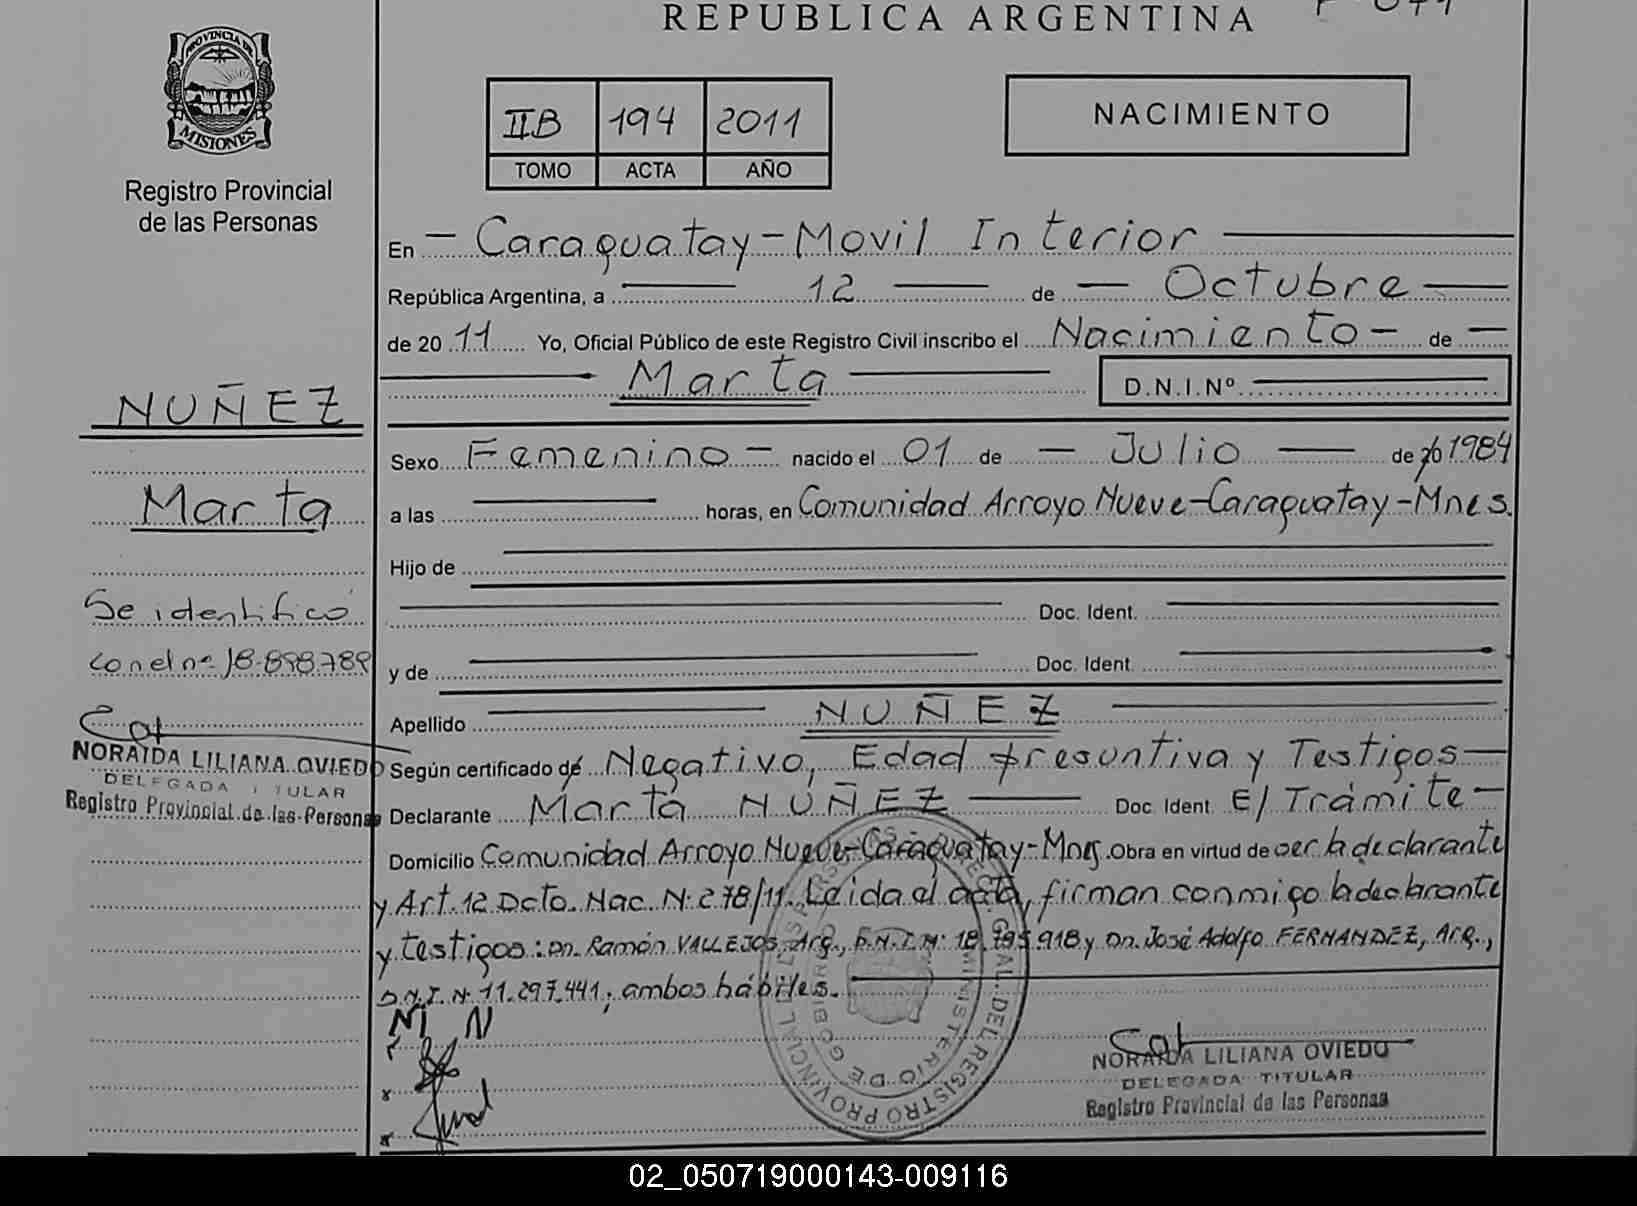 REPUBLICA ARGENTINA
PROVINCIA DE
MISIONES
Registro Provincial
de las Personas
IIB 194 2011
TOMO ACTA AÑO
NACIMIENTO
En - Caraguatay - Movil Interior
República Argentina, a 12 de - Octubre
de 20 11 Yo, Oficial Público de este Registro Civil inscribo el Nacimiento - de -
Marta D.N.I.Nº
NUÑEZ
Marta
Se identificó
con el nº 18.898.789
NORAIDA LILIANA OVIEDO
DELEGADA TITULAR
Registro Provincial de las Personas
Sexo Femenino - nacido el 01 de - Julio de 20 1984
a las horas, en Comunidad Arroyo Nueve-Caraguatay-Mnes.
Hijo de
Doc. Ident.
y de Doc. Ident.
Apellido NUÑEZ
Según certificado de Negativo, Edad presuntiva y Testigos
Declarante Marta NUÑEZ Doc. Ident. E/Trámite-
Domicilio Comunidad Arroyo Nueve-Caraguatay-Mnes. Obra en virtud de ser la declarante
y Art. 12 Dcto. Nac. N. 278/11. Leida el acta, firman conmigo la declarante
y testigos: Dn. Ramón VALLEJOS, Arg., D.N.I. Nº 18.795.918 y Dn. José Adolfo FERNANDEZ, Arg.,
D.N.I. Nº 11.297.441; ambos hábiles.
M N
NORAIDA LILIANA OVIEDO
DELEGADA TITULAR
Registro Provincial de las Personas
02_050719000143-009116